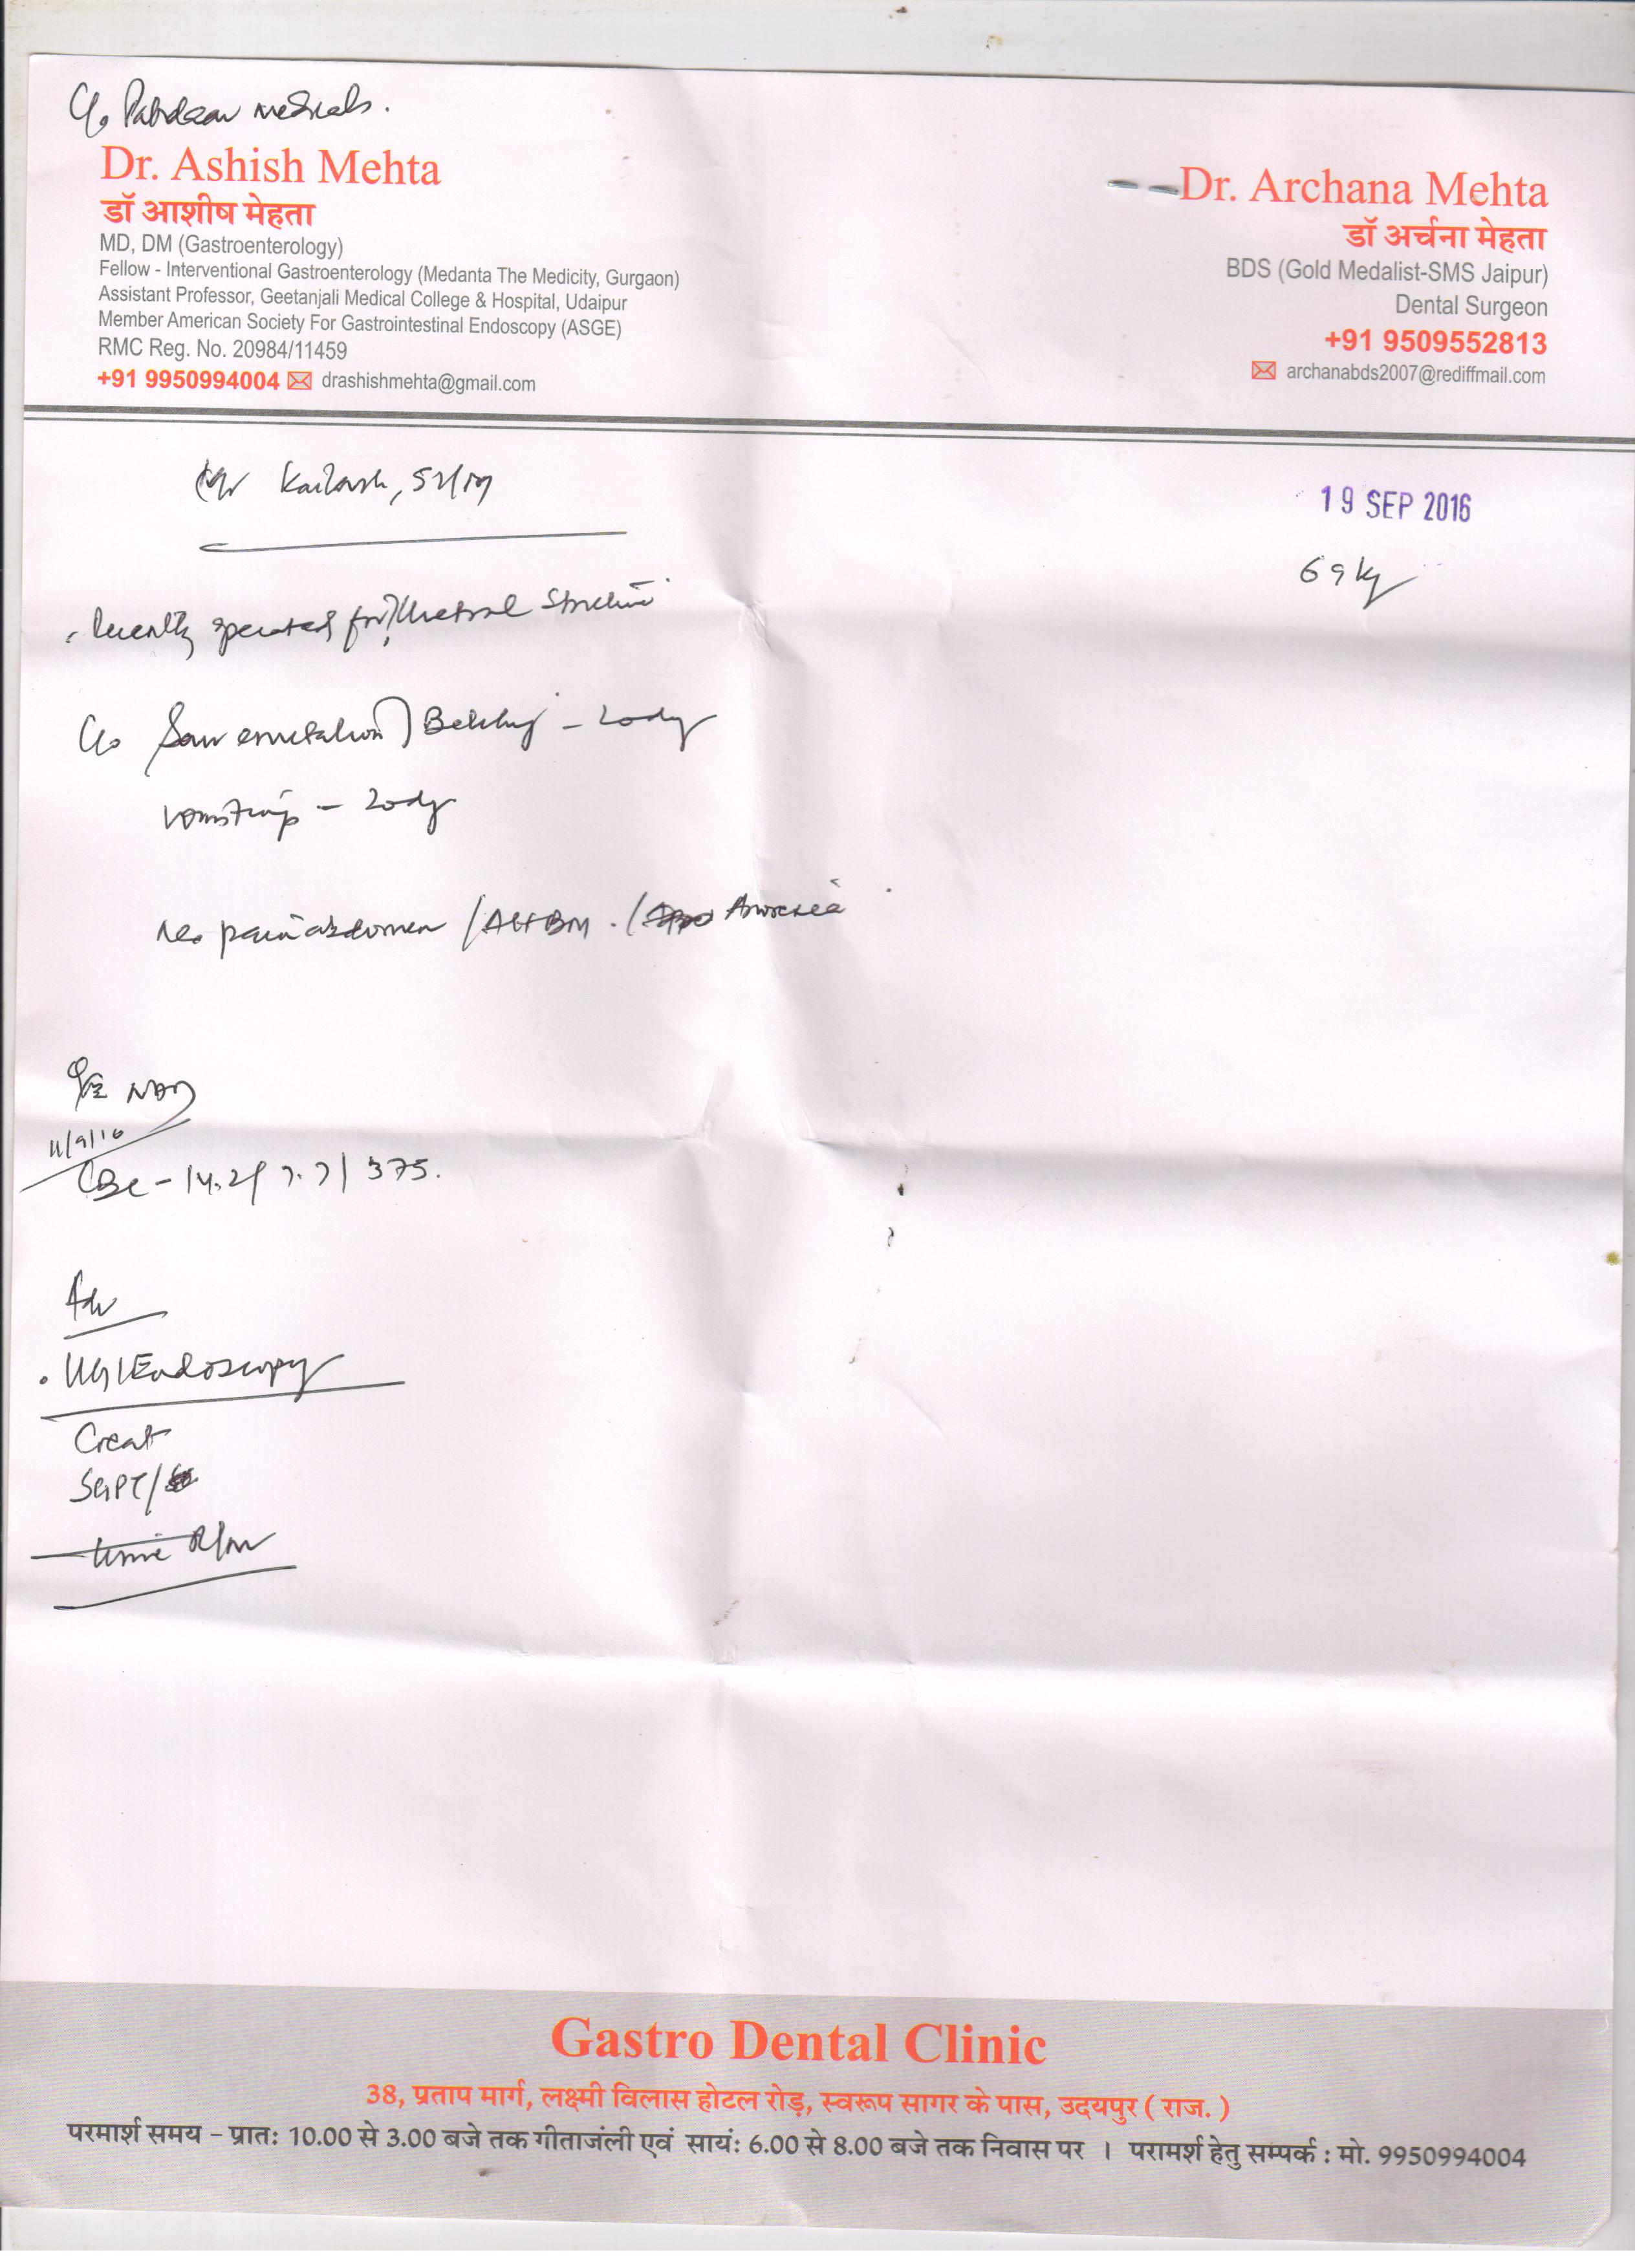 C/o Medicals.
Dr. Ashish Mehta
डॉ आशीष मेहता
MD, DM (Gastroenterology)
Fellow - Interventional Gastroenterology (Medanta The Medicity, Gurgaon)
Assistant Professor, Geetanjali Medical College & Hospital, Udaipur
Member American Society For Gastrointestinal Endoscopy (ASGE)
RMC Reg. No. 20984/11459
+91 9950994004 drashishmehta@gmail.com
Dr. Archana Mehta
डॉ अर्चना मेहता
BDS (Gold Medalist-SMS Jaipur)
Dental Surgeon
+91 9509552813
archanabds2007@rediffmail.com
Mr Kailash,
19 SEP 2016
69 kg
Recently operated for ? Urethral Stricture
C/o Sour eructation / Belching - 20 dy
Vomiting - 20 dy
No pain abdomen / Alt BM. / Anorexia
O/E NAD
11/9/16
CBC - 14.2 / 7.7 / 375.
Adv
. UGI Endoscopy
Creat
SGPT/
Urine R/M
Gastro Dental Clinic
38, प्रताप मार्ग, लक्ष्मी विलास होटल रोड़, स्वरूप सागर के पास, उदयपुर ( राज. )
परमार्श समय – प्रातः 10.00 से 3.00 बजे तक गीताजंली एवं सायंः 6.00 से 8.00 बजे तक निवास पर । परामर्श हेतु सम्पर्क : मो. 9950994004